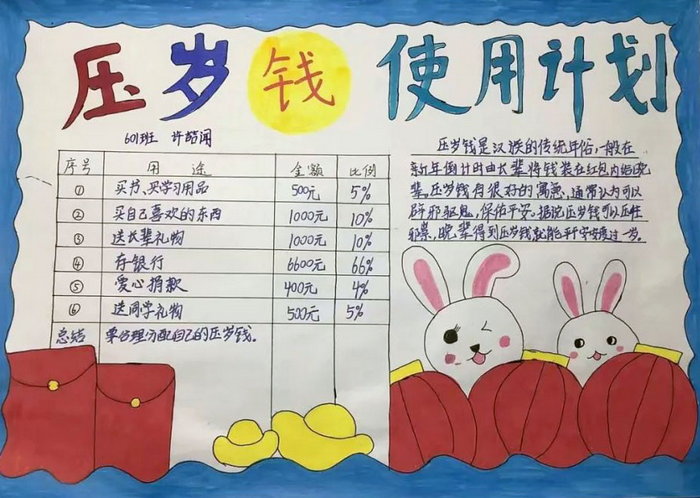 压岁钱使用计划
601班 许皓闻
序号 用途 金额 比例
① 买书、买学习用品 500元 5%
② 买自己喜欢的东西 1000元 10%
③ 送长辈礼物 1000元 10%
④ 存银行 6600元 66%
⑤ 爱心捐款 400元 4%
⑥ 送同学礼物 500元 5%
总结 要合理分配自己的压岁钱。
压岁钱是汉族的传统年俗,一般在
新年倒计时由长辈将钱装在红包内给晚
辈。压岁钱有很好的寓意,通常认为可以
辟邪驱鬼,保佑平安。据说压岁钱可以压住
邪祟,晚辈得到压岁钱就能平平安安度过一岁。